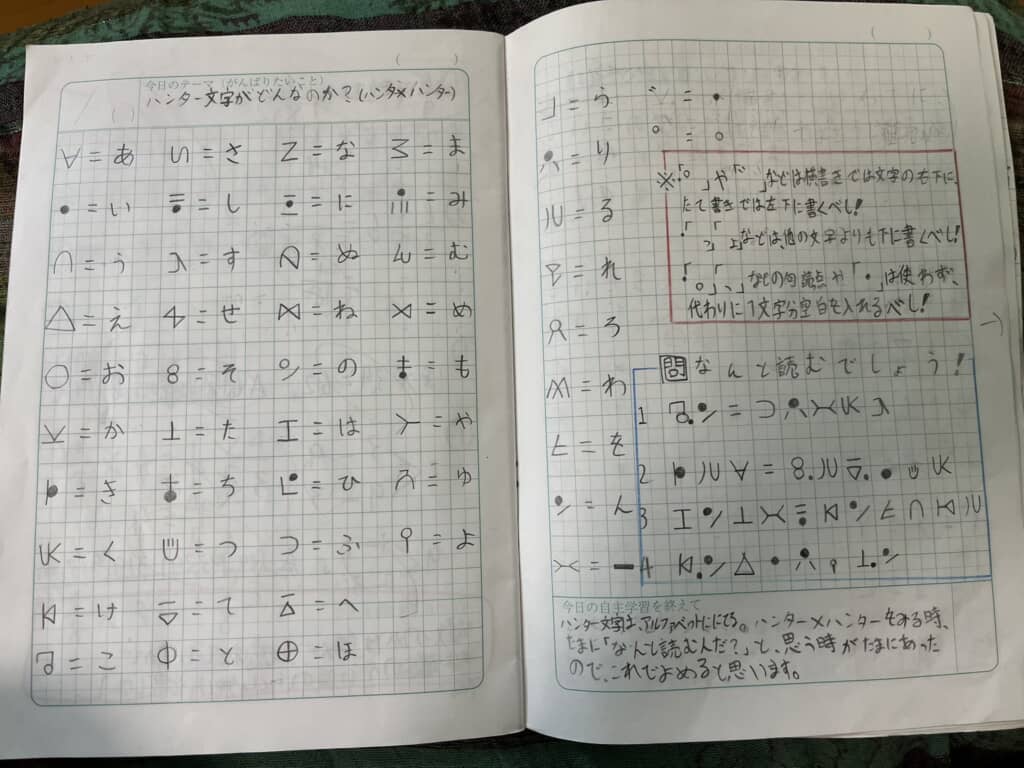 今日のテーマ(がんばりたいこと)
ハンター文字がどんなのか?(ハンタ×ハンター)
= あ = さ = な = ま
= い = し = に = み
= う = す = ぬ = む
= え = せ = ね = め
= お = そ = の = も
= か = た = は = や
= き = ち = ひ = ゆ
= く = つ = ふ = よ
= け = て = へ
= こ = と = ほ
( )
= ら ゛ =
= り ゜ =
= る
= れ
= ろ
= わ
= を
= ん
= ー
※「゜」や「゛」などは横書きでは文字の右下に、
たて書きでは左下に書くべし!
「っ」「ょ」などは他の文字よりも下に書くべし!
「。」「、」などの句読点や「・」は使わず、
代わりに1文字分空白を入れるべし!
問 なんと読むでしょう!
1
2
3
4
今日の自主学習を終えて
ハンター文字は、アルファベットににてる。ハンター×ハンターをみる時、
たまに「なんて読むんだ?」と、思う時がたまにあった
ので、これでよめると思います。